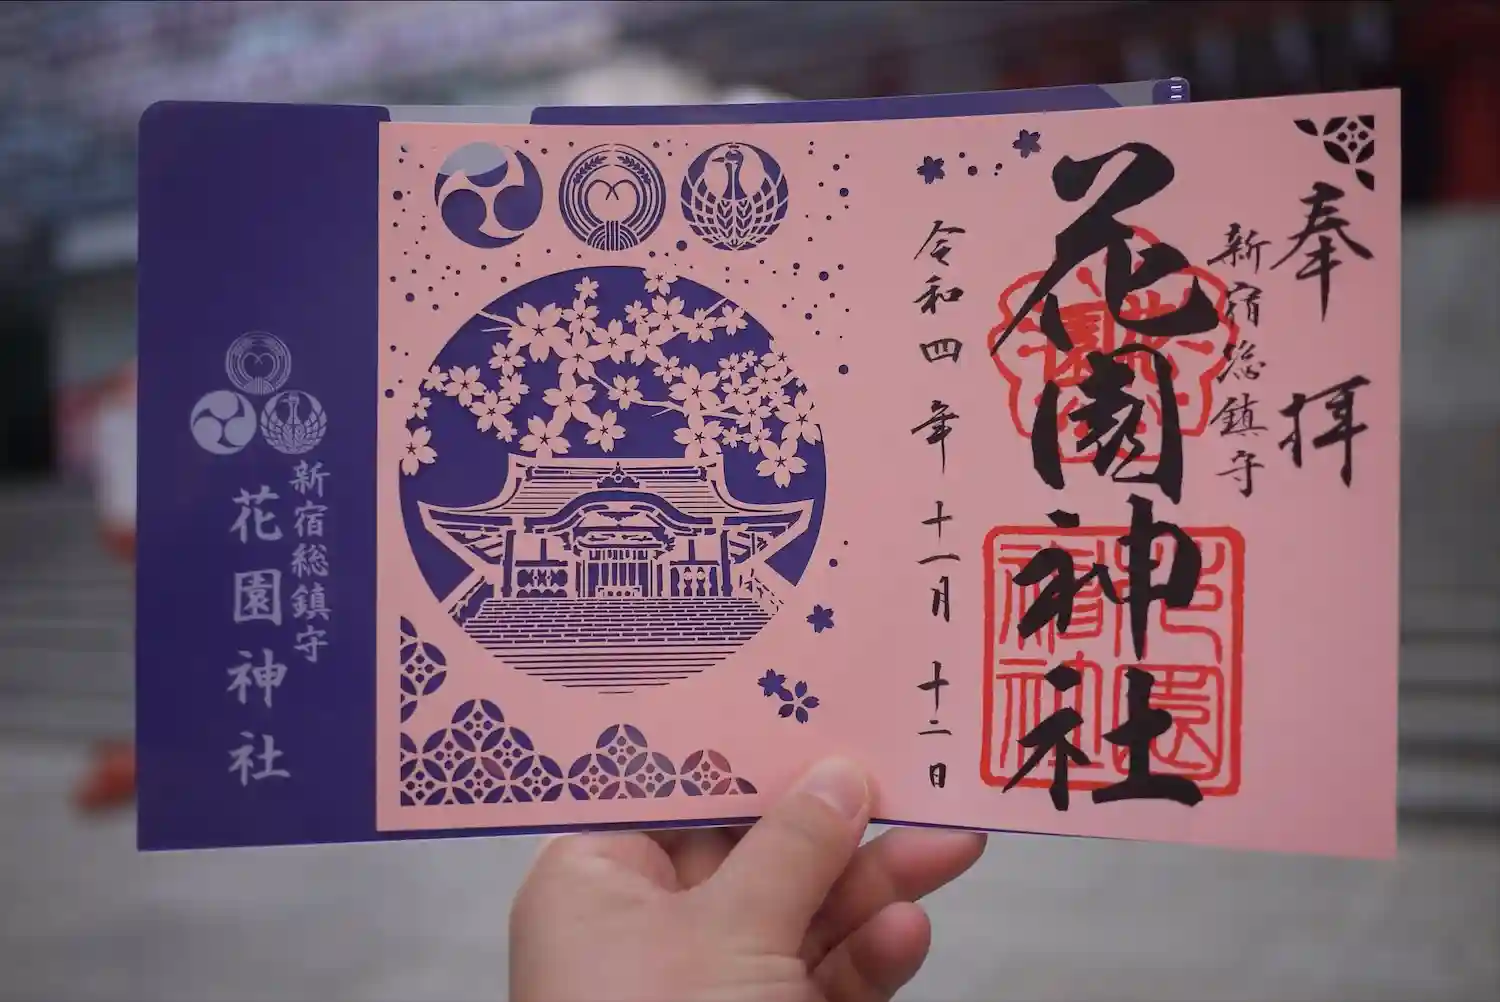 奉拝
新宿総鎮守
花園神社
令和四年十一月十二日
新宿総鎮守
花園神社
花園神社